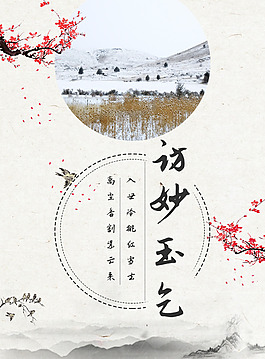 访妙玉乞
入世冷挑红雪去
离尘香割紫云来